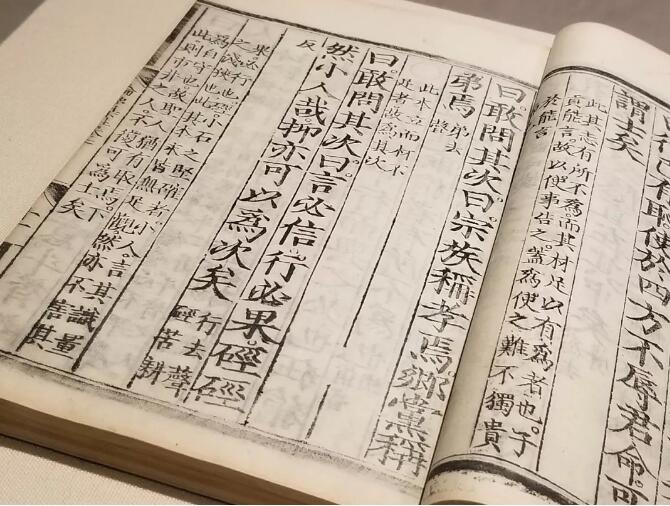 有恥使於四方不辱君命可
謂士矣
此其志有所不爲而其材足以有爲者也。子
貢能言故以使事告之。蓋爲使之難不獨貴
於能言
曰敢問其次曰宗族稱孝焉鄉黨稱
弟焉
弟去
聲
此本立而材不
足者故爲其次
曰敢問其次曰言必信行必果硜硜
然小人哉抑亦可以爲次矣
行去聲
硜苦耕
反
果必行也硜小石之堅確者小人言其識量
之淺狹也此其本末皆無足觀然亦不害其
爲自守也故聖人猶有取焉下
此則市井之人不復可爲士矣